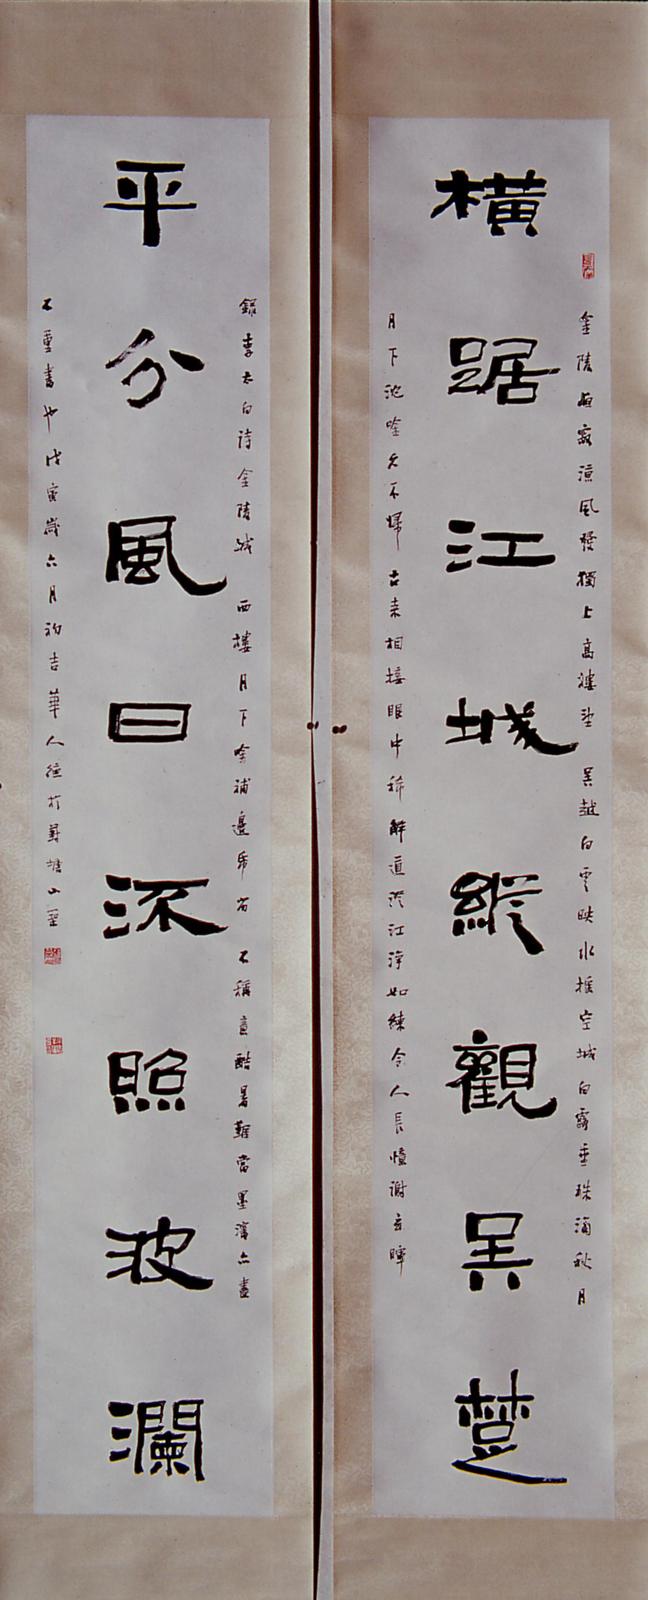 橫踞江城縱觀吳楚
金陵夜寂涼風發獨上高樓望吳越白雲映水搖空城白露垂珠滴秋月
月下沉吟久不歸古來相接眼中稀解道澄江淨如練令人長憶謝玄暉
平分風日流照波瀾
錄李太白詩金陵城西樓月下吟補邊 不稱意酷暑難當墨瀋亦盡
不重書也戊寅歲六月初吉華人德於